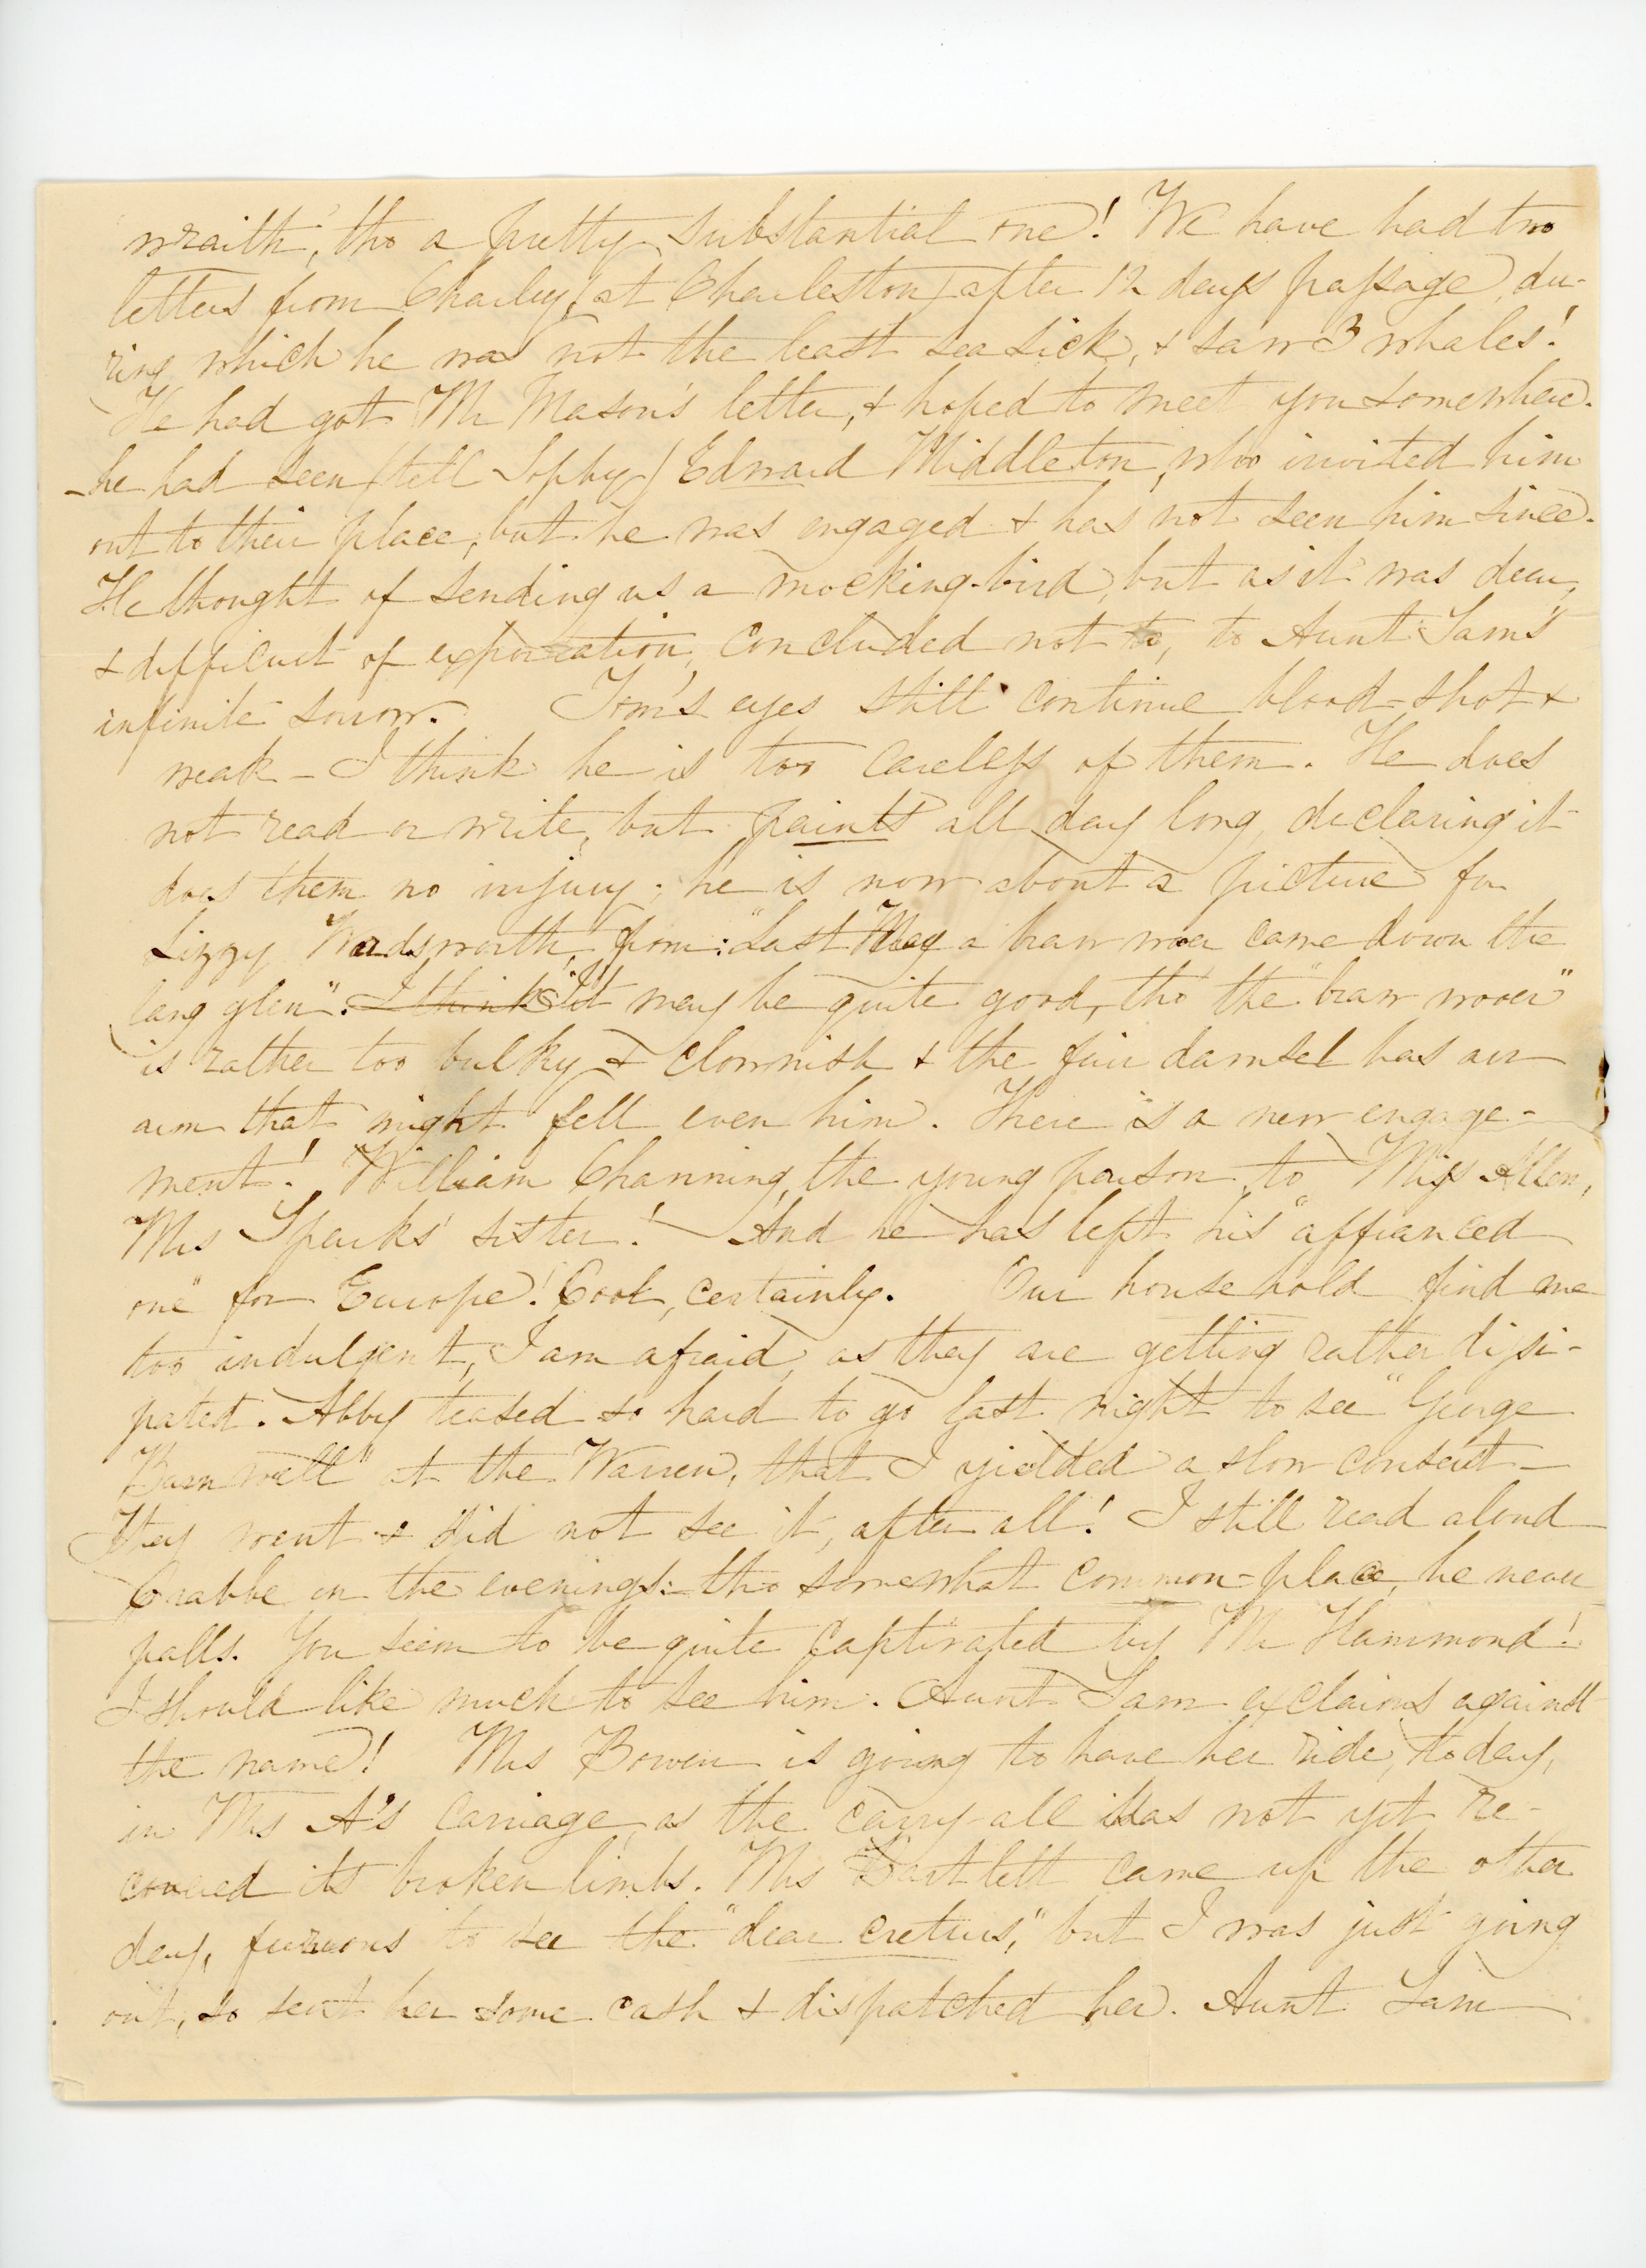 wraith, tho a pretty substantial one! We have had two
letters from Charley, (at Charleston) after 12 days passage, du-
ring which he was not the least sea sick, & saw 3 whales!
He had got Mr Mason's letter, & hoped to meet you somewhere.
- he had seen (tell Sophy) Edward Middleton, who invited him
out to their place, but he was engaged & has not seen him since.
He thought of sending us a mocking-bird, but as it was dear,
& difficult of exportation, concluded not to, to Aunt Sam's
infinite sorrow. Tom's eyes still continue blood-shot &
weak - I think he is too careless of them. He does
not read or write, but paints all day long, declaring it
does them no injury; he is now about a picture for
Lizzy Wadsworth, from: "Last May a braw wooer came down the
lang glen". I think it It may be quite good, tho' the "braw wooer"
is rather too bulky & clownish & the fair damsel has an
arm that might fell even him. There is a new engage-
ment! William Channing, the young parson, to Miss Allen,
Mrs Sparks' sister! And he has left his "affianced
one" for Europe! Cool, certainly. Our household find me
too indulgent, I am afraid, as they are getting rather dissi-
pated. Abby teased so hard to go last night to see "George
Barnwell" at the Warren, that I yielded a slow consent -
They went & did not see it, after all! I still read aloud
Crabbe in the evenings: tho somewhat common-place, he never
palls. You seem to be quite captivated by Mr Hammond!
I should like much to see him. Aunt Sam exclaims against
the name! Mrs Bowen is going to have her ride, today,
in Mrs A's carriage, as the carry-all has not yet re-
covered its broken limbs. Mrs Bartlett came up the other
day, furious to see the "dear creturs," but I was just going
out, so sent her some cash & dispatched her. Aunt Sam